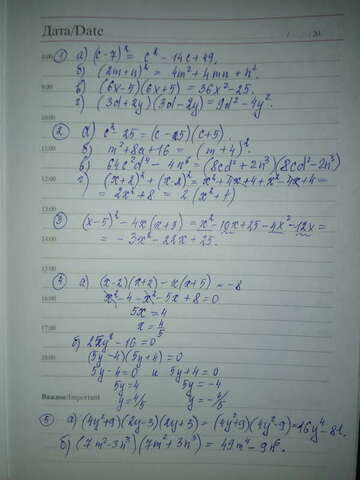 Дата/Date
20
8:00
① а) (c-7)² = c² - 14c + 49.
б) (2m+n)² = 4m² + 4mn + n².
9:00
в) (6x-5)(6x+5) = 36x² - 25.
г) (3d+2y)(3d-2y) = 9d² - 4y².
10:00
② а) c² - 25 = (c-5)(c+5).
11:00
б) m² + 8a + 16 = (m+4)².
в) 64c²d⁴ - 4n⁶ = (8cd²+2n³)(8cd²-2n³)
12:00
г) (x+2)² + (x-2)² = x² + 4x + 4 + x² - 4x + 4 =
= 2x² + 8 = 2(x²+4)
13:00
③ (x-5)² - 4x(x+3) = x² - 10x + 25 - 4x² - 12x =
14:00
= -3x² - 22x + 25.
15:00
④ а) (x-2)(x+2) - x(x+5) = -8
16:00
x² - 4 - x² - 5x + 8 = 0
5x = 4
17:00
x = 4/5
б) 25y² - 16 = 0
18:00
(5y-4)(5y+4) = 0
5y-4=0 и 5y+4=0
5y=4 5y=-4
y=4/5 y=-4/5
Важно/Important
⑤ а) (4y²+9)(2y-3)(2y+3) = (4y²+9)(4y²-9) = 16y⁴ - 81.
б) (7m²-3n³)(7m²+3n³) = 49m⁴ - 9n⁶.